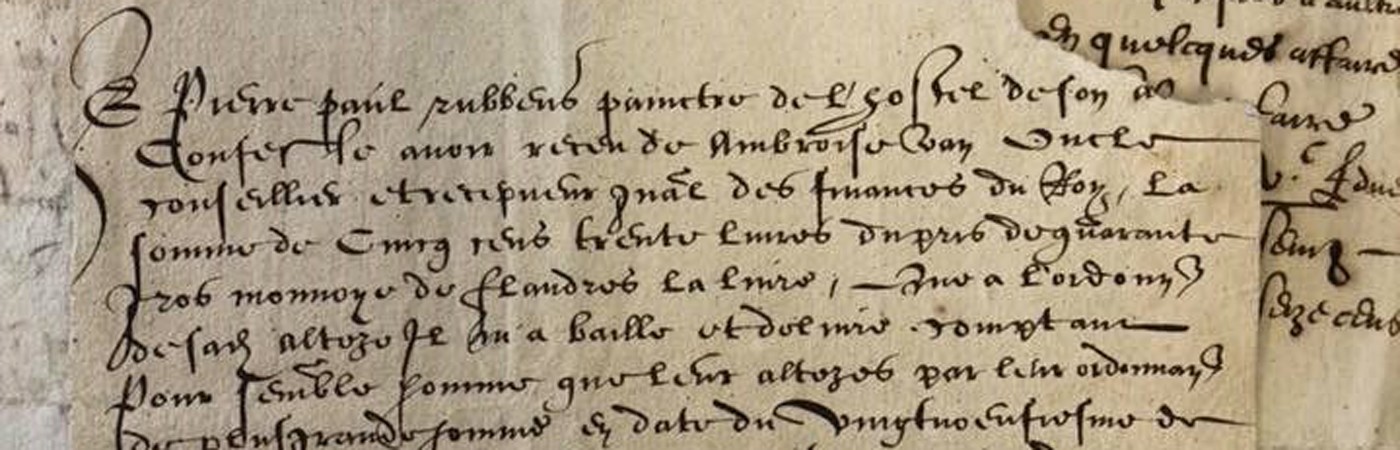 Je Pierre paul rubbens painctre de l'hostel de son al.
Confesse avoir receu de Ambroise van Oncle
conseillier et recepveur gnāl des finances du Roy, la
somme de Cincq cens trente livres du pris de quarante
gros monnoye de flandres la livre, Que a l'ordonn
de sad alteze Il m'a baillé et delivré comptant
Pour semble somme que leur altezes par leur ordonnan
de plus grande somme en date du vingtneufiesme de
en quelcques affaires